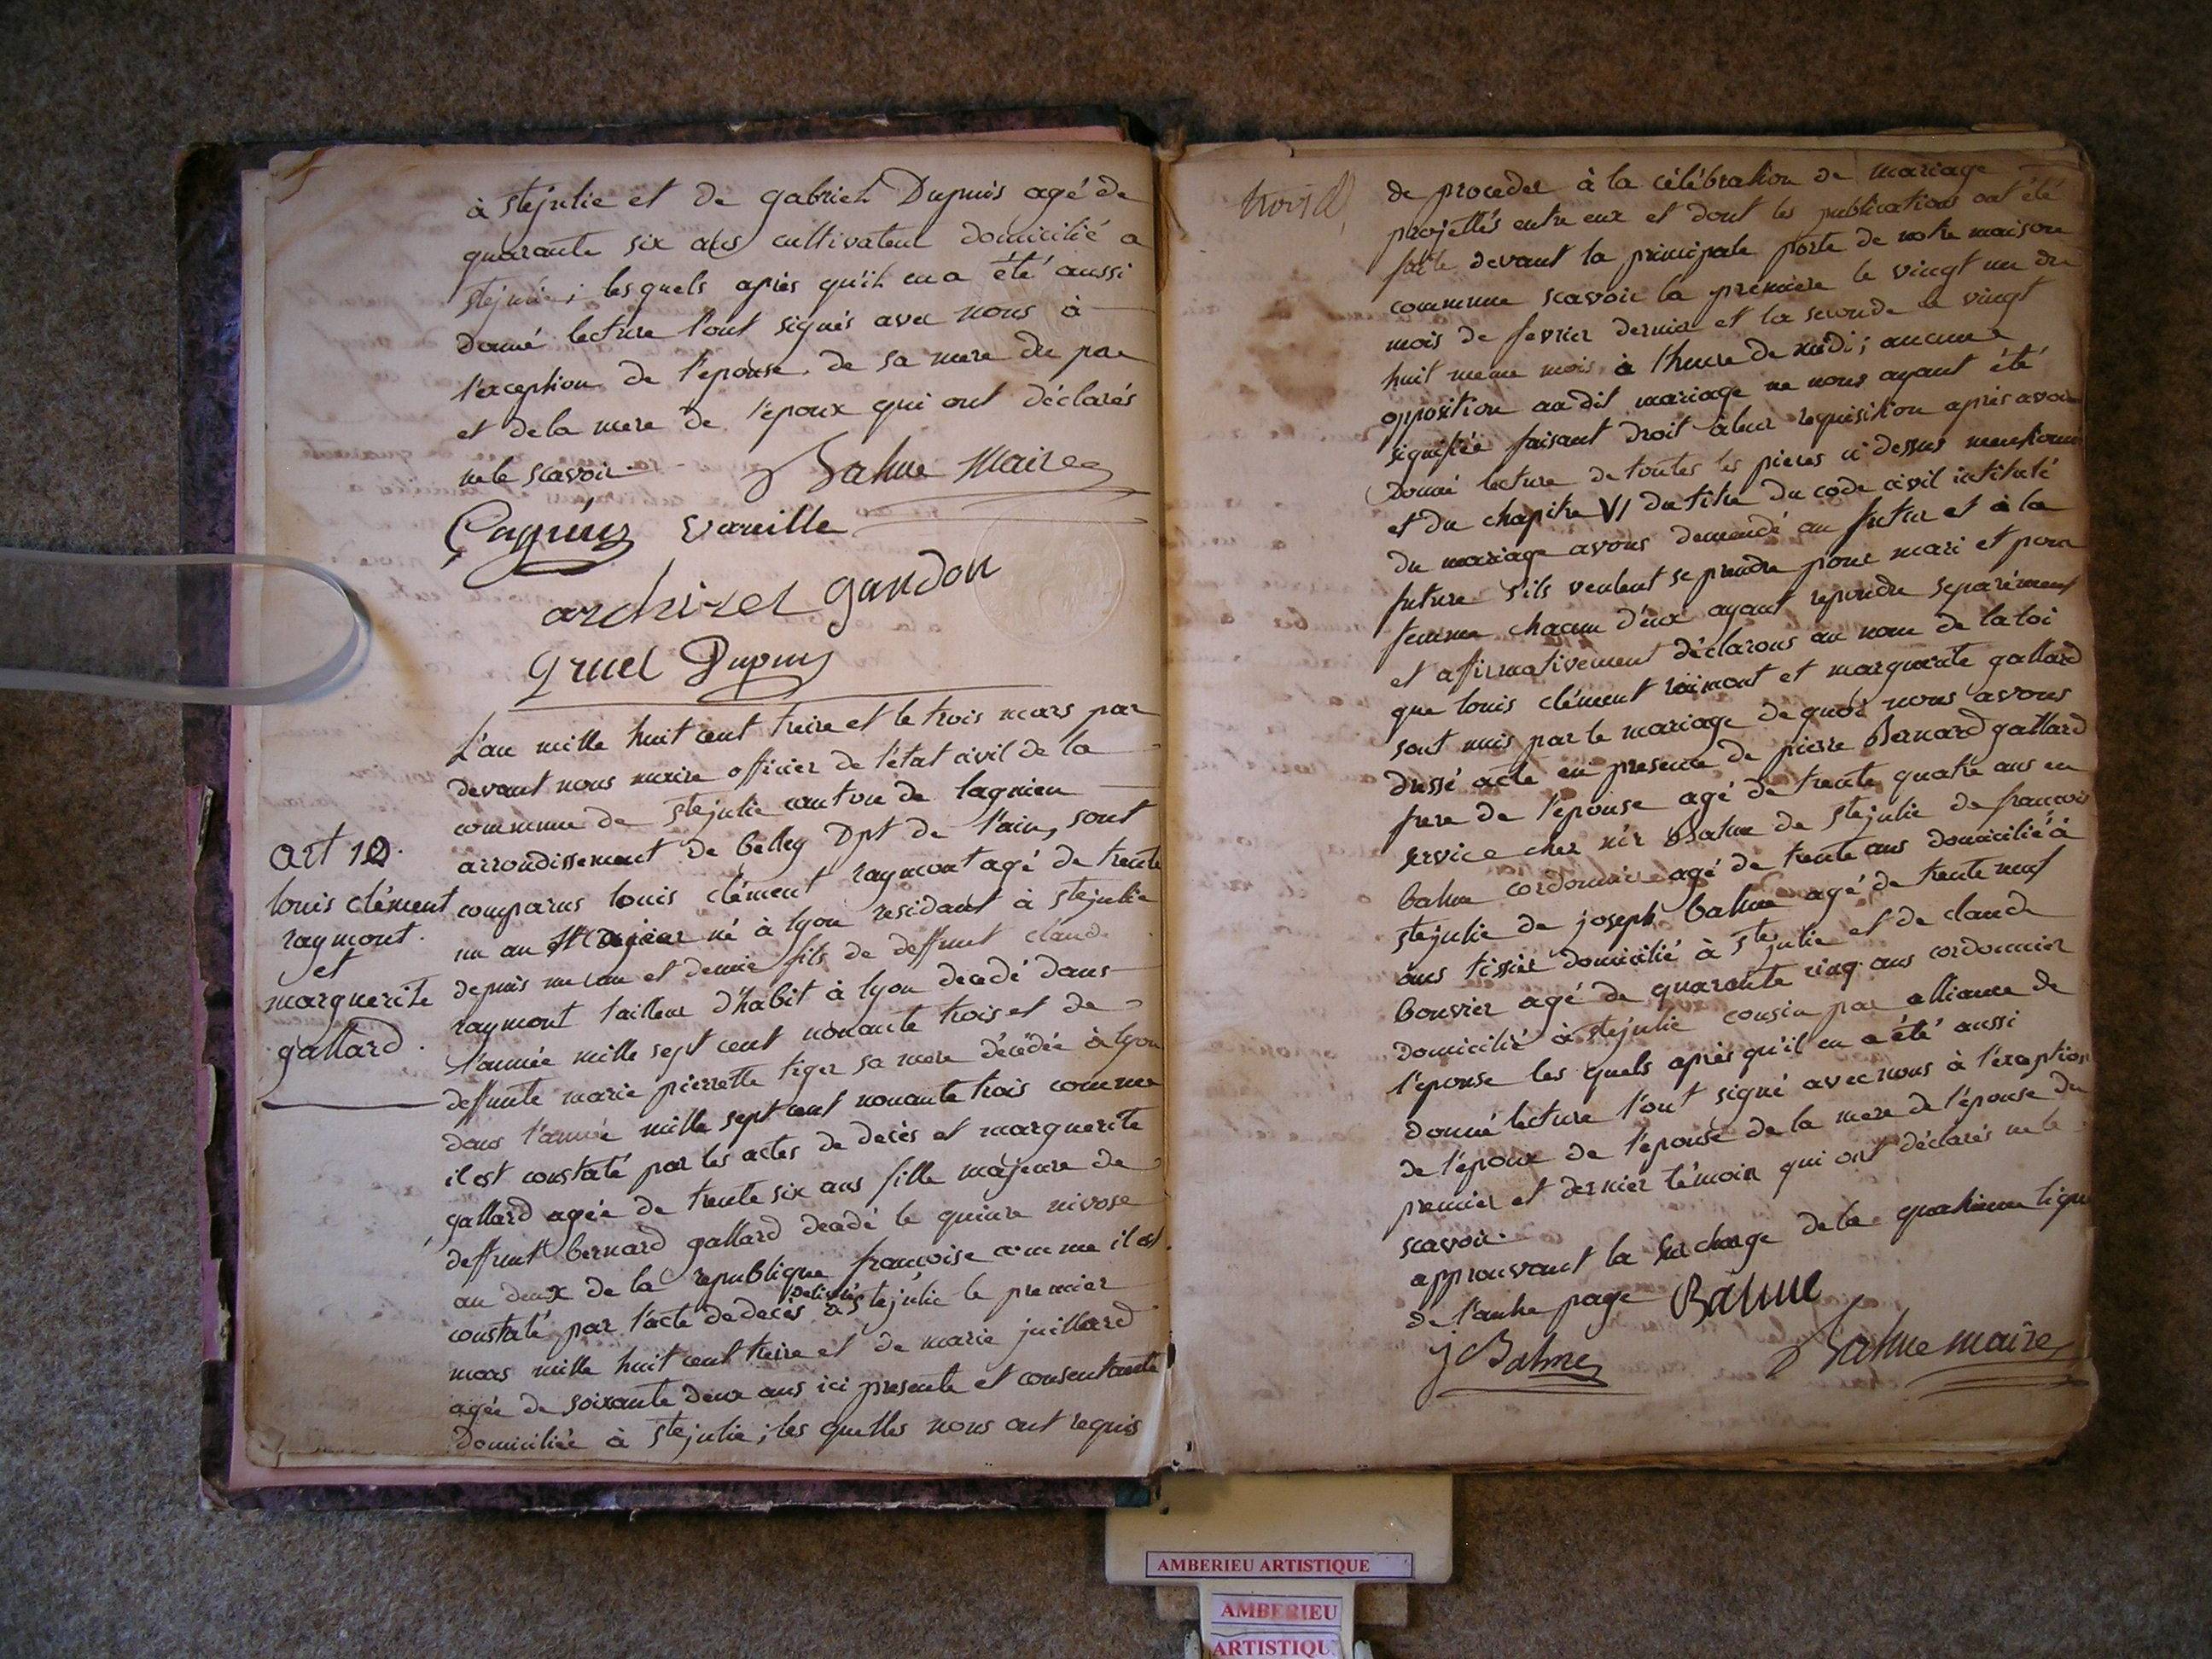 à stejulie et de gabriel Dupuis agé de
quarante six ans cultivateur domicilié a
stejulie; lesquels après qu'il en a été aussi
donné lecture l'ont signés avec nous à
l'exception de l'épouse de sa mere du pere
et de la mere de l'époux qui ont déclarés
ne le scavoir.
Bahue Maire
vareille
gandon
gruel Dupuis
L'an mille huit cent treize et le trois mars par
devant nous maire officier de l'état civil de la
commune de stejulie canton de lagnieu
arrondissement de belley Dpt de l'ain, sont
art 12.
louis clément
raymont.
et
marguerite
gallard.
comparus louis clément raymont agé de trente
un an né à lyon residant à stejulie
depuis un an et demie fils de deffunt claud.
raymont tailleur d'habit à lyon decedé dans
l'année mille sept cent nonante trois et de
deffunte marie pierrette tiger sa mere décédée à lyon
dans l'année mille sept cent nonante trois comme
il est constaté par les actes de decès et marguerite
gallard agée de trente six ans fille majeure de
deffunt bernard gallard decedé le quinze nivose
an deux de la republique francoise comme il est
constaté par l'acte de decès delivré à stejulie le premier
mars mille huit cent treize et de marie juillard
agée de soixante deux ans ici presente et consentante
domiciliée à stejulie; les quelles nous ont requis
de proceder à la célébration de mariage
projettés entre eux et dont les publications ont été
faite devant la principale porte de notre maison
commune scavoir la premiere le vingt un du
mois de fevrier dernier et la seconde le vingt
huit meme mois à l'heure de midi; aucune
opposition audit mariage ne nous ayant été
signifiée faisant droit à leur requisition après avoir
donné lecture de toutes les pieces ci dessus mentionné
et du chapitre VI du titre du code civil intitulé
du mariage avons demendé au futur et à la
future s'ils veulent se prendre pour mari et pour
femme chacun d'eux ayant repondu separément
et affirmativement déclarons au nom de la loi
que louis clément raimont et marguerite gallard
sont unis par le mariage de quoi nous avons
dressé acte en presence de pierre Bernard gallard
frere de l'épouse agé de trente quatre ans en
service chez mr Bahue de stejulie de francois
bahue cordonnier agé de trente ans domicilié à
stejulie de joseph bahue agé de trente neuf
ans tissier domicilié à stejulie et de claude
bouvier agé de quarante cinq ans cordonnier
domicilié à stejulie cousin par alliance de
l'épouse les quels après qu'il en a été aussi
donné lecture l'ont signé avec nous à l'exception
de l'époux de l'épouse de la mere de l'épouse du
premier et dernier témoin qui ont déclarés ne le
scavoir.
approuvant la surcharge de la quatrieme ligne
de l'autre page Bahue
j Bahue
Bahue maire
AMBERIEU ARTISTIQUE
AMBERIEU
ARTISTIQU